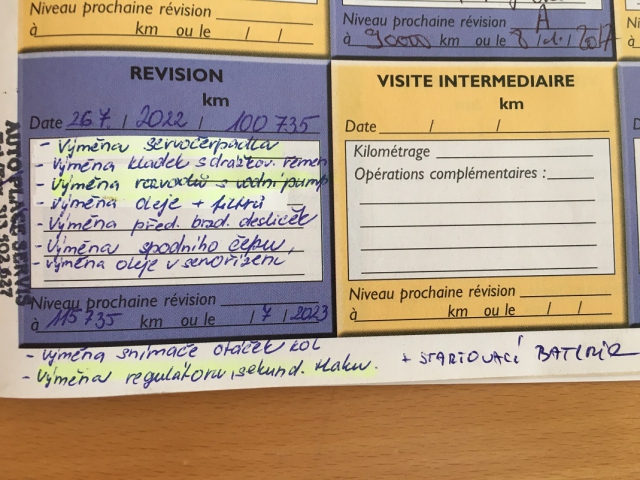 Niveau prochaine révision
à km ou le / /
Niveau prochaine révision A
à 90000 km ou le 8 / / 2017
REVISION
km
Date 26 7. / 2022 / 100 735
- Výměna servočerpadla
- Výměna kladek s drážkov. řemen
- Výměna rozvodů s vodní pump
- Výměna oleje + filtrů
- Výměna před. brzd. destiček
- Výměna spodního čepu,
- Výměna oleje v servořízení
Niveau prochaine révision
à 115 735 km ou le / 7 / 2023
- Výměna snímače otáček kol
- Výměna regulátoru sekund. tlaku.
+ STARTOVACÍ BATERIE
VISITE INTERMEDIAIRE
km
Date / /
Kilométrage
Opérations complémentaires :
Niveau prochaine révision
à km ou le / /
SERVIS